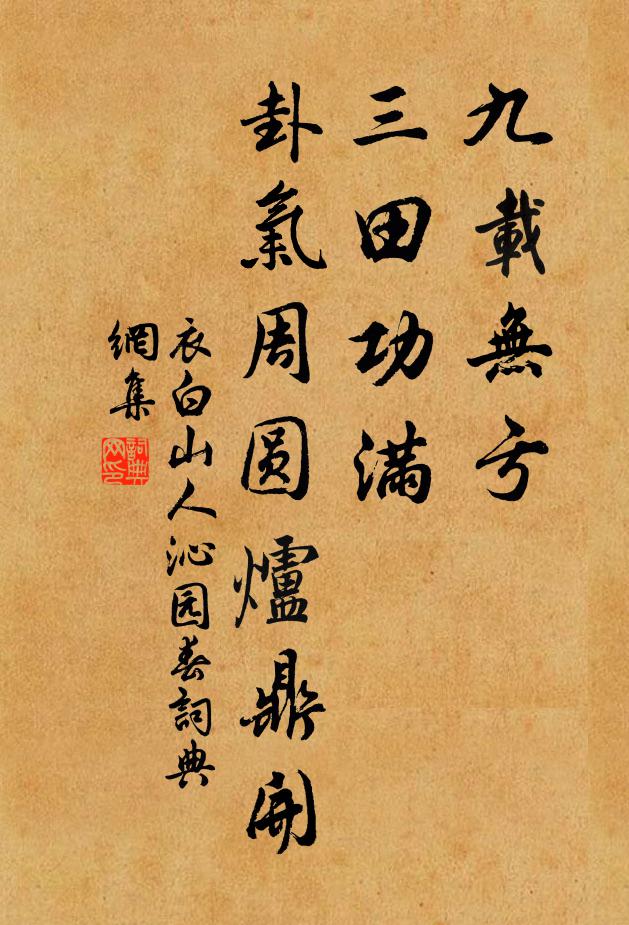 九載無亏
三田功满
卦氣周圆爐鼎開
衣白山人沁园春詞典
網集
詞典
网印